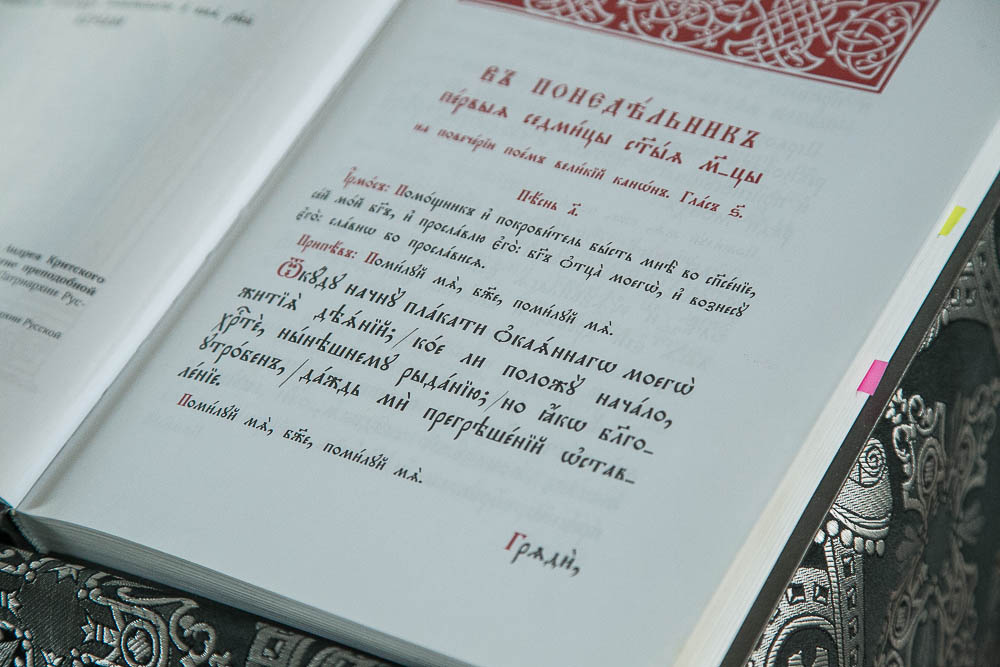 Андреа Критского
преподобной
Патриархии Рус-
Русской
въ понедѣ́льникъ
пе́рвыѧ седми́цы ст҃ы́ѧ м҃-цы
на повече́рїи пое́мъ вели́кїй канѡ́нъ. Гла́съ ѕ҃.
Пѣ́снь а҃.
І҆рмо́съ: Помо́щникъ и҆ покрови́тель бы́сть мнѣ̀ во сп҃се́нїе,
се́й мо́й бг҃ъ, и҆ просла́влю є҆го̀: бг҃ъ ѻ҆тца̀ моегѡ̀, и҆ вознесꙋ̀
є҆го̀: сла́внѡ бо просла́висѧ.
Припѣ́въ: Поми́лꙋй мѧ̀, бж҃е, поми́лꙋй мѧ̀.
Ѿкꙋ́дꙋ начнꙋ̀ пла́кати ѻ҆каѧ́ннагѡ моегѡ̀
житїѧ̀ дѣѧ́нїй; / ко́е ли положꙋ̀ нача́ло,
хр҃тѐ, ны́нѣшнемꙋ рыда́нїю; / но ꙗ҆́кѡ бл҃го-
ꙋтро́бенъ, / да́ждь мѝ прегрѣше́нїй ѡ҆ставле́-
ле́нїе.
Поми́лꙋй мѧ̀, бж҃е, поми́лꙋй мѧ̀.
Грѧдѝ,